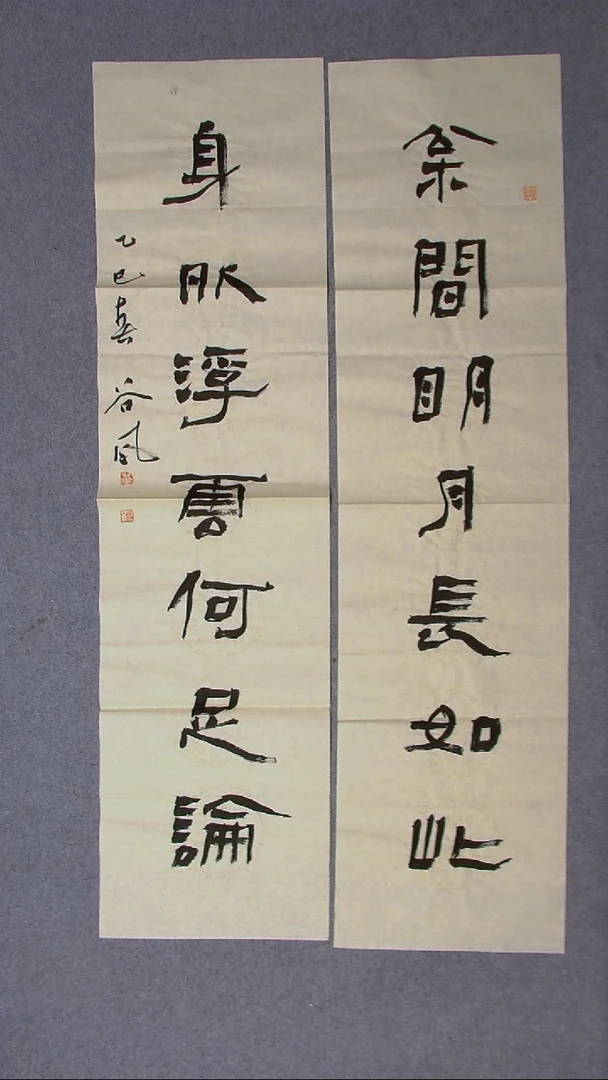 枀間明月長如此
身外浮雲何足論
乙巳春 谷风